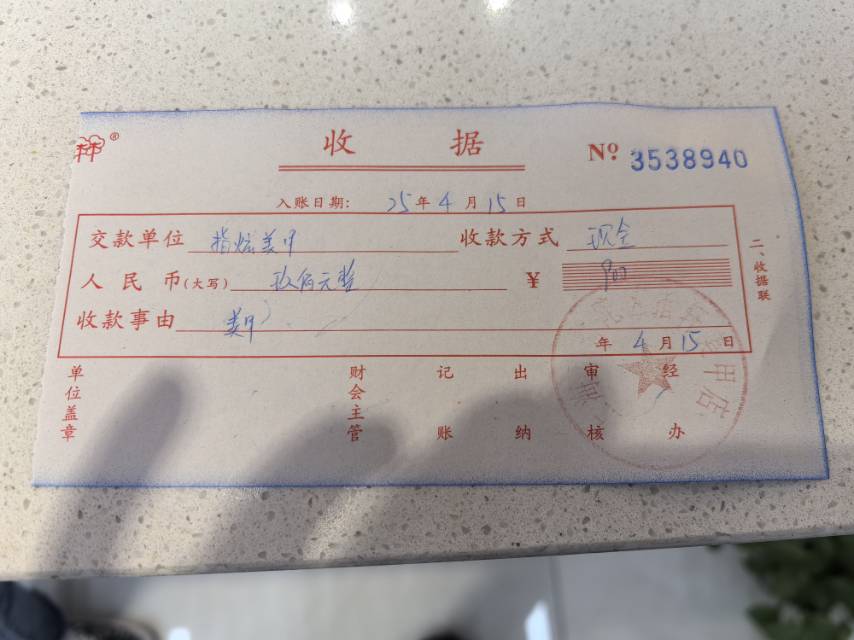 收 据
Nº 3538940
入账日期: 25年4月15日
交款单位 指炫美甲 收款方式 现金
人民币(大写) 玖佰元整 ¥ 900
收款事由 美甲
年4月15日
二、收据联
单位盖章 财会主管 记账 出纳 审核 经办
美甲店